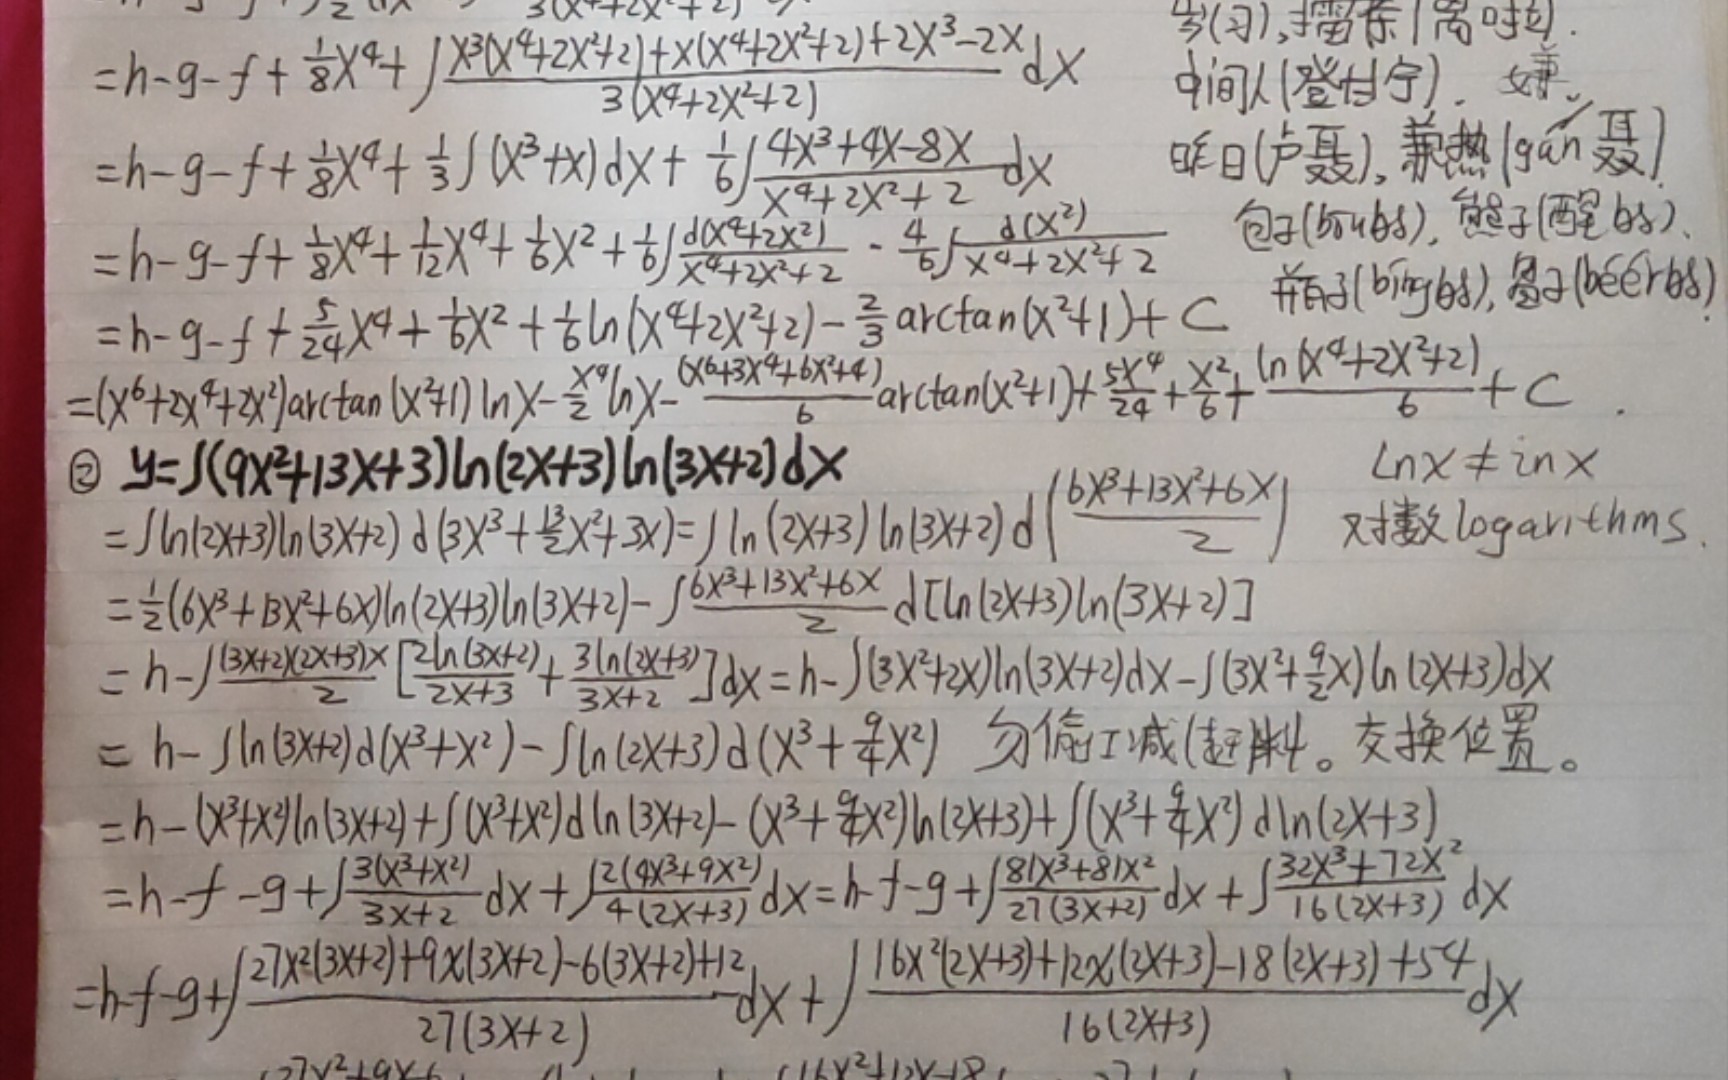 =h-g-f+1/8X⁴+∫(X³(X⁴+2X²+2)+X(X⁴+2X²+2)+2X³-2X)/(3(X⁴+2X²+2))dX
=h-g-f+1/8X⁴+1/3∫(X³+X)dX+1/6∫(4X³+4X-8X)/(X⁴+2X²+2)dX
=h-g-f+1/8X⁴+1/12X⁴+1/6X²+1/6∫d(X⁴+2X²)/(X⁴+2X²+2)-4/6∫d(X²)/(X⁴+2X²+2)
=h-g-f+5/24X⁴+1/6X²+1/6ln(X⁴+2X²+2)-2/3arctan(X²+1)+C
=(X⁶+2X⁴+2X²)arctan(X²+1)lnX-X⁴/2lnX-(X⁶+3X⁴+6X²+4)/6arctan(X²+1)+5X⁴/24+X²/6+ln(X⁴+2X²+2)/6+C.
中间人(登甘宁).
昨日(卢聂),
包子(boubs),
(bingbs), (beerbs)
② y=∫(9X²+13X+3)ln(2X+3)ln(3X+2)dX
lnx≠inx
=∫ln(2X+3)ln(3X+2)d(3X³+13/2X²+3X)=∫ln(2X+3)ln(3X+2)d((6X³+13X²+6X)/2)
对数logarithms.
=1/2(6X³+13X²+6X)ln(2X+3)ln(3X+2)-∫(6X³+13X²+6X)/2d[ln(2X+3)ln(3X+2)]
=h-∫(3X+2)(2X+3)X/2[2ln(3X+2)/(2X+3)+3ln(2X+3)/(3X+2)]dX=h-∫(3X²+2X)ln(3X+2)dX-∫(3X²+9/2X)ln(2X+3)dX
=h-∫ln(3X+2)d(X³+X²)-∫ln(2X+3)d(X³+9/4X²) 勿偷工减 料。交换位置。
=h-(X³+X²)ln(3X+2)+∫(X³+X²)dln(3X+2)-(X³+9/4X²)ln(2X+3)+∫(X³+9/4X²)dln(2X+3)
=h-f-g+∫3(X³+X²)/(3X+2)dX+∫2(4X³+9X²)/(4(2X+3))dX=h-f-g+∫(81X³+81X²)/(27(3X+2))dX+∫(32X³+72X²)/(16(2X+3))dX
=h-f-g+∫(27X²(3X+2)+9X(3X+2)-6(3X+2)+12)/(27(3X+2))dX+∫(16X²(2X+3)+12X(2X+3)-18(2X+3)+54)/(16(2X+3))dX